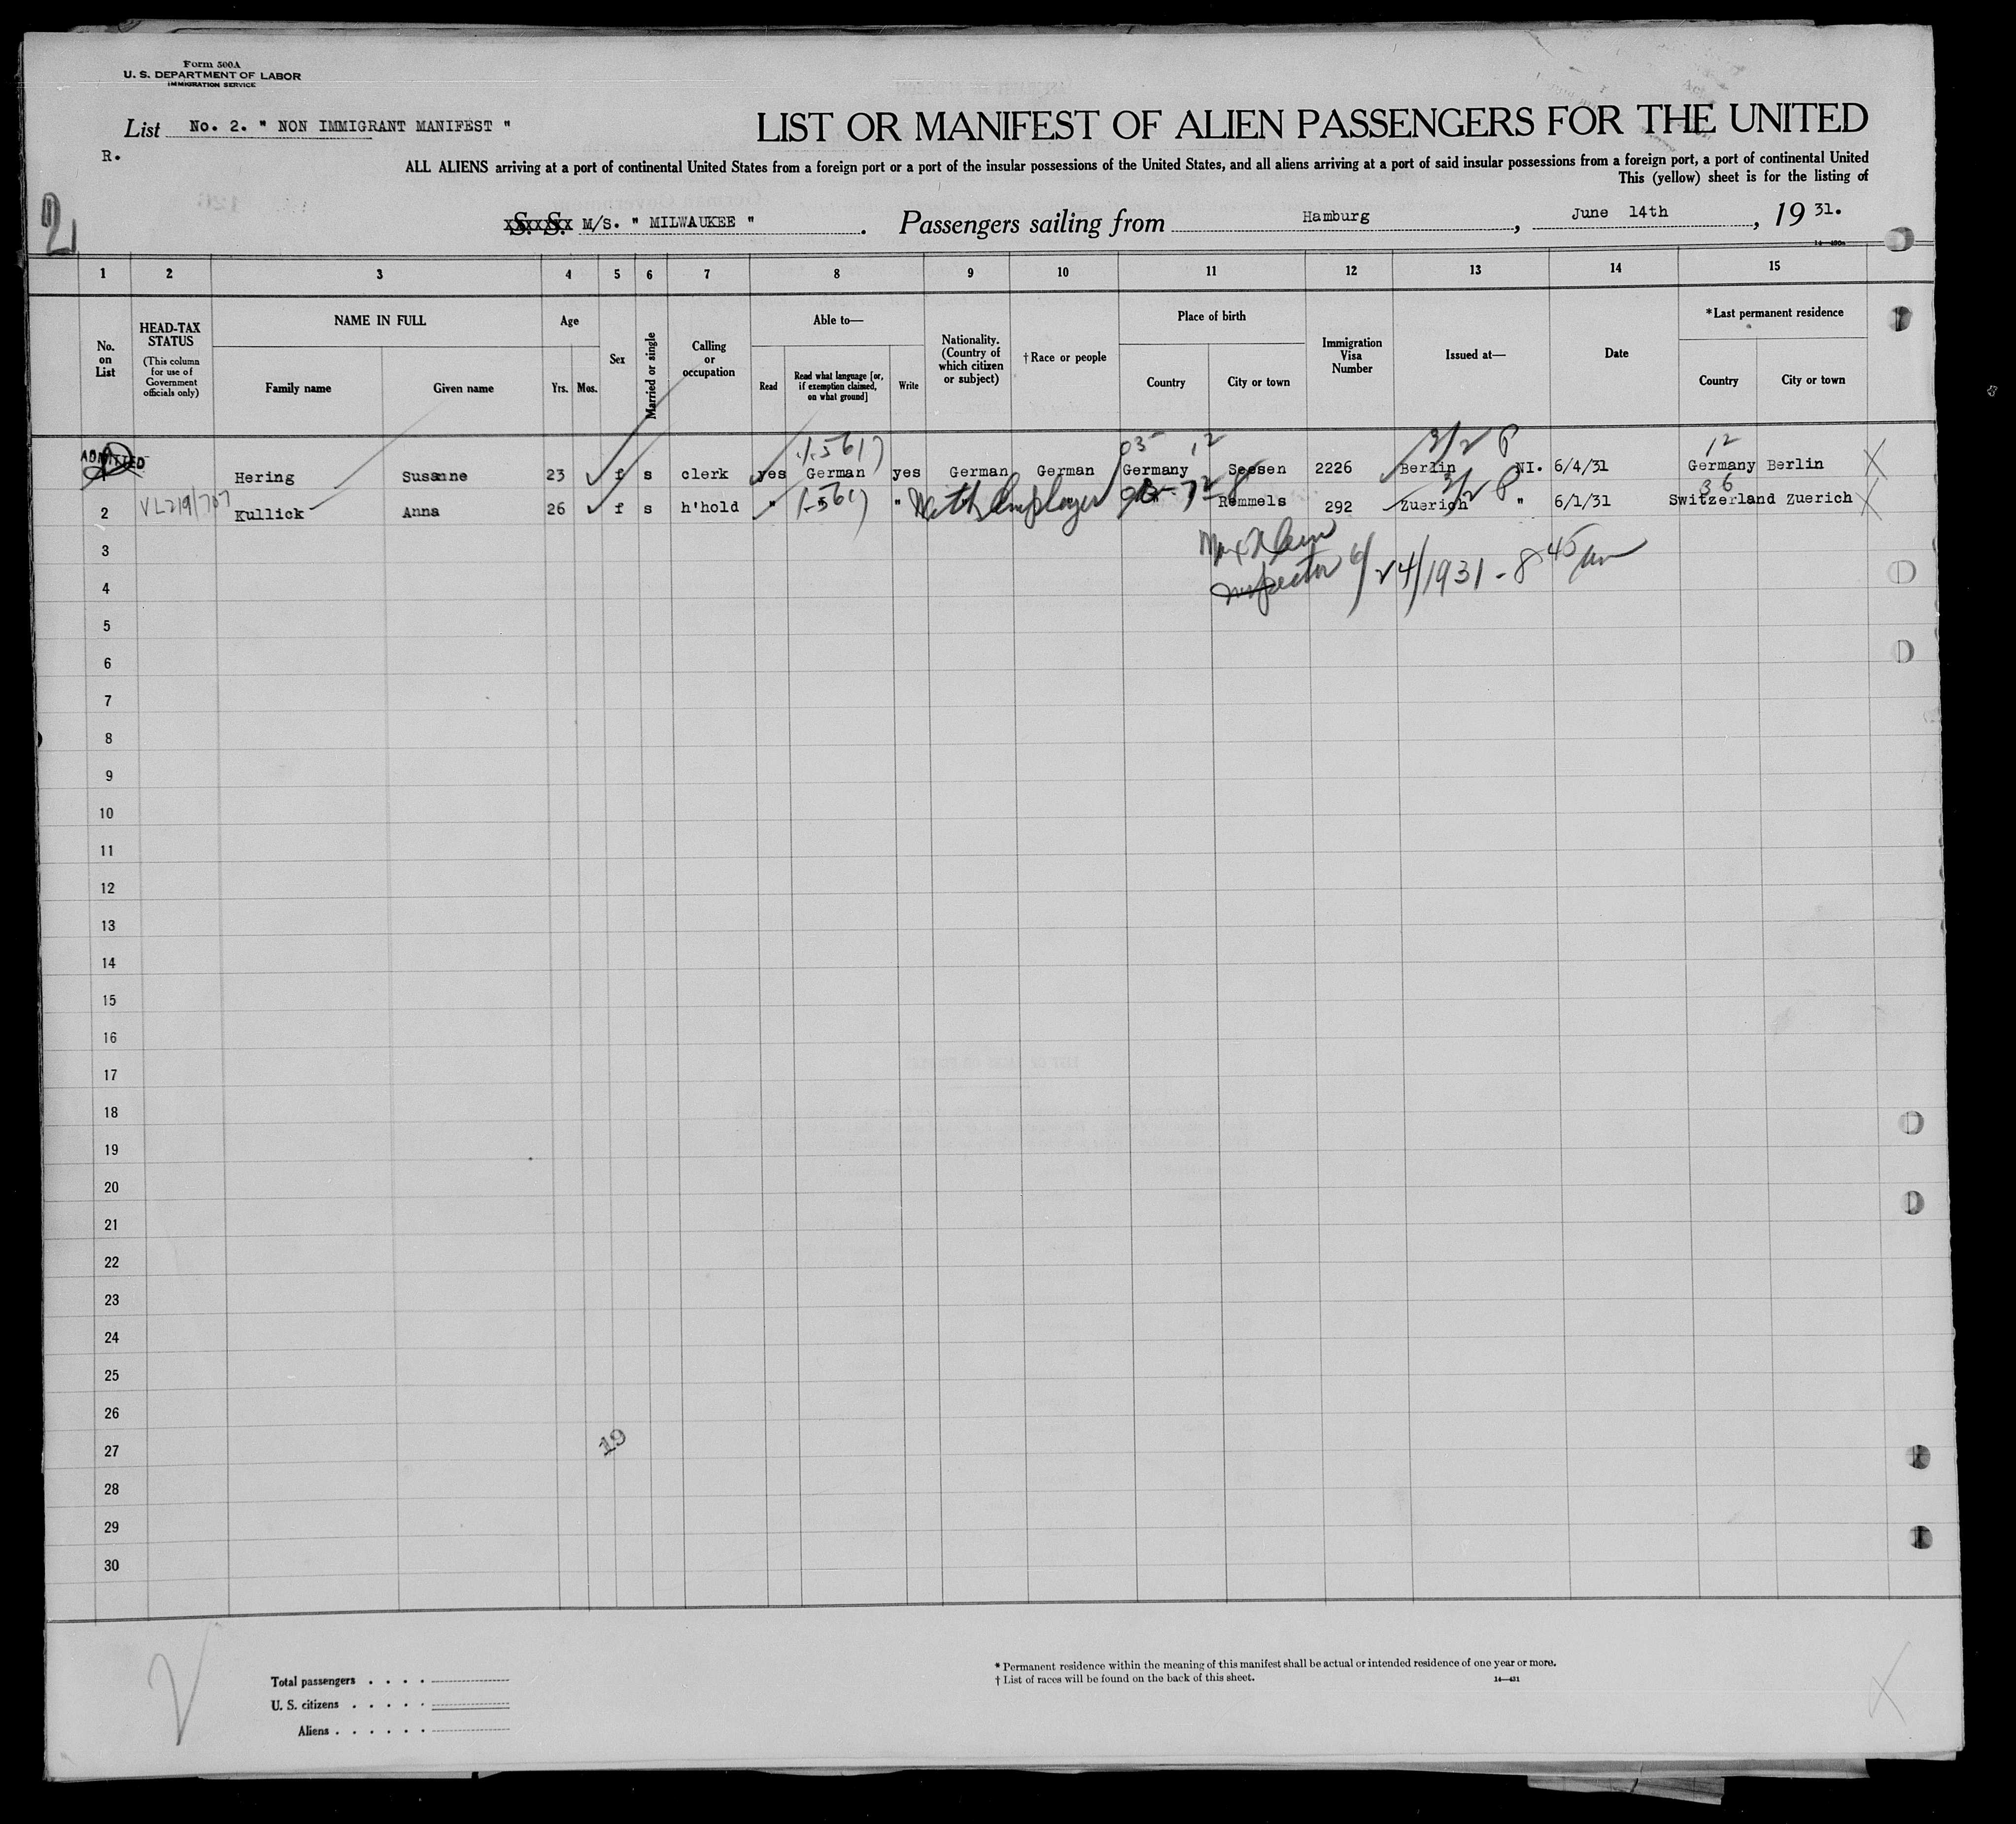 Form 500A
U. S. DEPARTMENT OF LABOR
IMMIGRATION SERVICE
List No. 2. " NON IMMIGRANT MANIFEST "
R.
LIST OR MANIFEST OF ALIEN PASSENGERS FOR THE UNITED
ALL ALIENS arriving at a port of continental United States from a foreign port or a port of the insular possessions of the United States, and all aliens arriving at a port of said insular possessions from a foreign port, a port of continental United
This (yellow) sheet is for the listing of
2
S. S. M/S. " MILWAUKEE ". Passengers sailing from Hamburg, June 14th, 19 31.
1 2 3 4 5 6 7 8 9 10 11 12 13 14 15
No. on List
HEAD-TAX STATUS
(This column for use of Government officials only)
NAME IN FULL
Family name Given name
Age
Yrs. Mos.
Sex
Married or single
Calling or occupation
Able to—
Read
Read what language [or, if exemption claimed, on what ground]
Write
Nationality. (Country of which citizen or subject)
† Race or people
Place of birth
Country City or town
Immigration Visa Number
Issued at—
Date
* Last permanent residence
Country City or town
03 12 3/2 P 12
ADMITTED Hering Susanne 23 f s clerk yes German yes German German Germany Seesen 2226 Berlin NI. 6/4/31 Germany Berlin X
3/2 P 36
2 VL219/707 Kullick Anna 26 f s h'hold " " With Employer Remmels 292 Zuerich " 6/1/31 Switzerland Zuerich X
3
Inspector 6/24/1931 - 8 45 am
4
5
6
7
8
9
10
11
12
13
14
15
16
17
18
19
20
21
22
23
24
25
26
27
19
28
29
30
Total passengers . . . .
U. S. citizens . . . . .
Aliens . . . . . .
* Permanent residence within the meaning of this manifest shall be actual or intended residence of one year or more.
† List of races will be found on the back of this sheet. 14—431